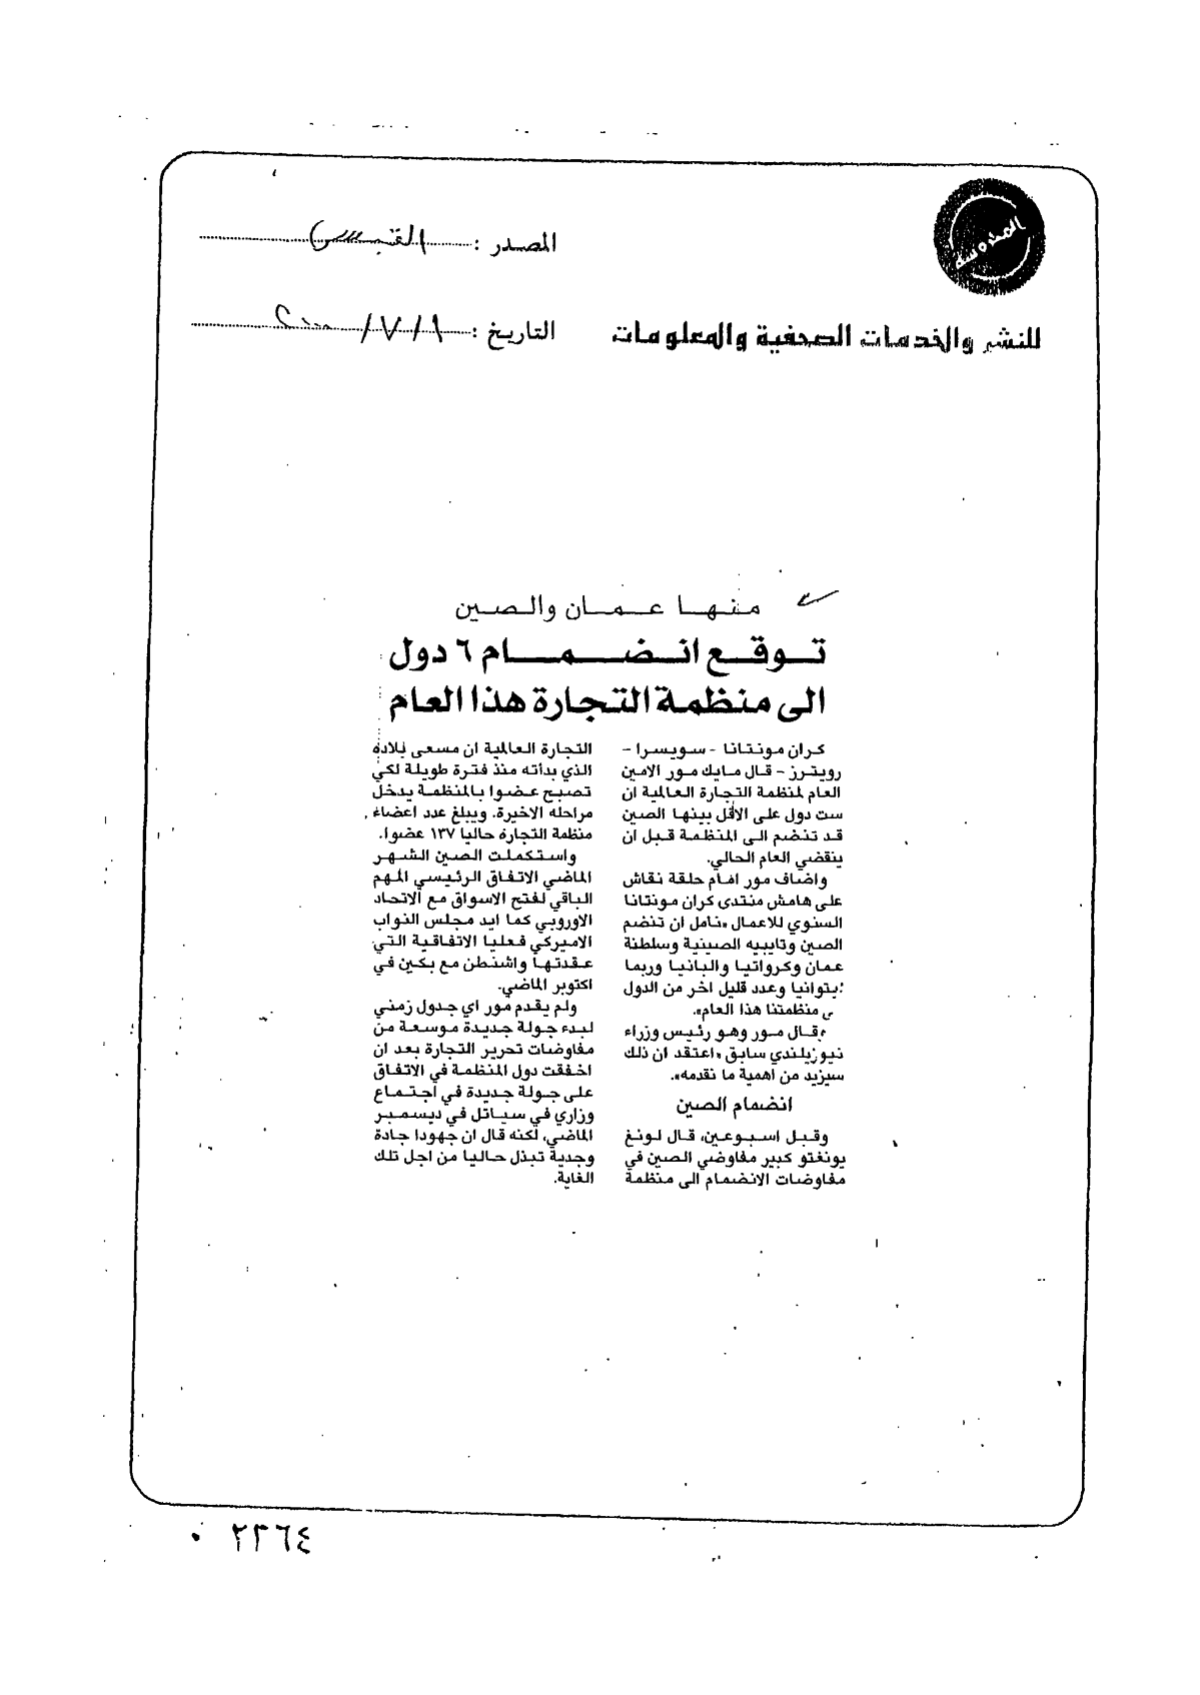 المصدر : القبس
التاريخ : ١ / ٧ / ٢٠٠٠
للنشر والخدمات الصحفية والمعلومات
منها عمان والصين
توقع انضمام ٦ دول
الى منظمة التجارة هذا العام
كران مونتانا - سويسرا -
رويترز - قال مايك مور الامين
العام لمنظمة التجارة العالمية ان
ست دول على الأقل بينها الصين
قد تنضم الى المنظمة قبل ان
ينقضي العام الحالي.
واضاف مور امام حلقة نقاش
على هامش منتدى كران مونتانا
السنوي للاعمال «نامل ان تنضم
الصين وتايبيه الصينية وسلطنة
عمان وكرواتيا والبانيا وربما
ليتوانيا وعدد قليل اخر من الدول
منظمتنا هذا العام».
وقال مور وهو رئيس وزراء
نيوزيلندي سابق «اعتقد ان ذلك
سيزيد من اهمية ما نقدمه».
انضمام الصين
وقبل اسبوعين، قال لونغ
يونغتو كبير مفاوضي الصين في
مفاوضات الانضمام الى منظمة
التجارة العالمية ان مسعى بلاده
الذي بدأته منذ فترة طويلة لكي
تصبح عضوا بالمنظمة يدخل
مراحله الاخيرة. ويبلغ عدد اعضاء
منظمة التجارة حاليا ١٣٧ عضوا.
واستكملت الصين الشهر
الماضي الاتفاق الرئيسي المهم
الباقي لفتح الاسواق مع الاتحاد
الاوروبي كما ايد مجلس النواب
الاميركي فعليا الاتفاقية التي
عقدتها واشنطن مع بكين في
اكتوبر الماضي.
ولم يقدم مور اي جدول زمني
لبدء جولة جديدة موسعة من
مفاوضات تحرير التجارة بعد ان
اخفقت دول المنظمة في الاتفاق
على جولة جديدة في اجتماع
وزاري في سياتل في ديسمبر
الماضي، لكنه قال ان جهودا جادة
وجدية تبذل حاليا من اجل تلك
الغاية.
٢٣٦٤